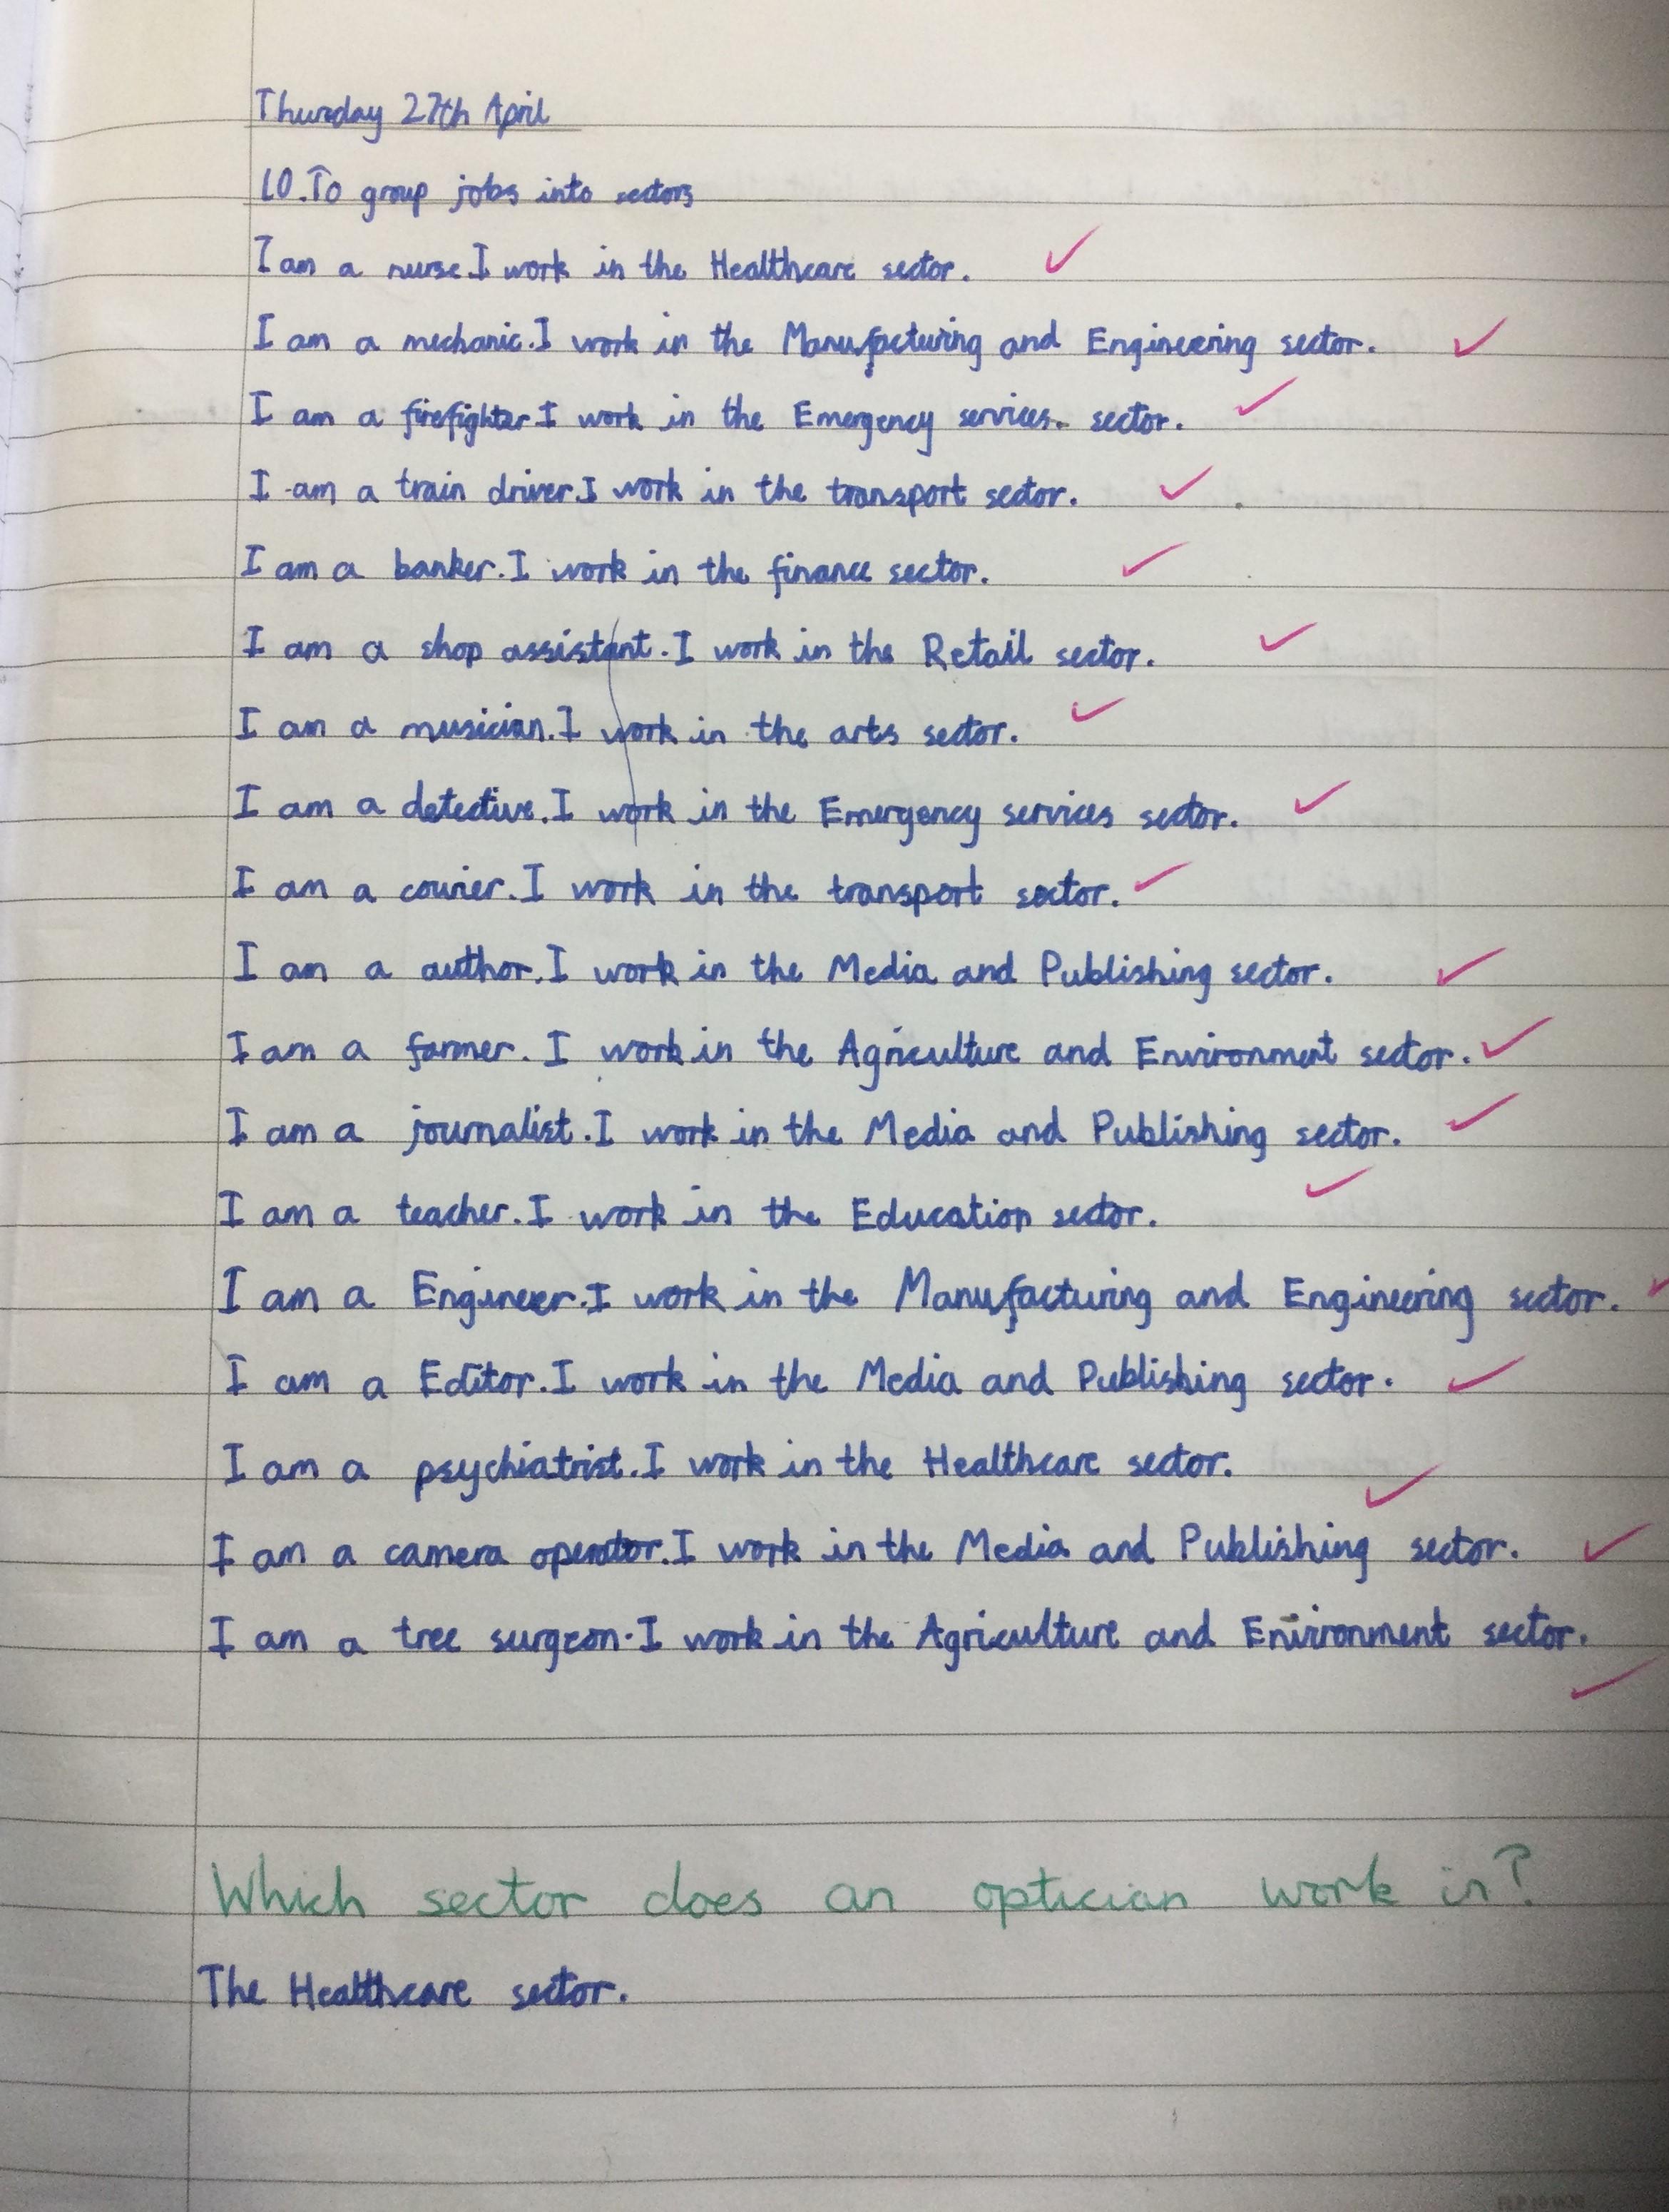 Thursday 27th April
LO.To group jobs into sectors
I am a nurse.I work in the Healthcare sector.
I am a mechanic.I work in the Manufacturing and Engineering sector.
I am a firefighter.I work in the Emergency services. sector.
I am a train driver.I work in the transport sector.
I am a banker.I work in the finance sector.
I am a shop assistant.I work in the Retail sector.
I am a musician.I work in the arts sector.
I am a detective.I work in the Emergency services sector.
I am a courier.I work in the transport sector.
I am a author.I work in the Media and Publishing sector.
I am a farmer. I work in the Agriculture and Environment sector.
I am a journalist.I work in the Media and Publishing sector.
I am a teacher.I work in the Education sector.
I am a Engineer.I work in the Manufacturing and Engineering sector.
I am a Editor.I work in the Media and Publishing sector.
I am a psychiatrist.I work in the Healthcare sector.
I am a camera operator.I work in the Media and Publishing sector.
I am a tree surgeon.I work in the Agriculture and Environment sector.
Which sector does an optician work in?
The Healthcare sector.